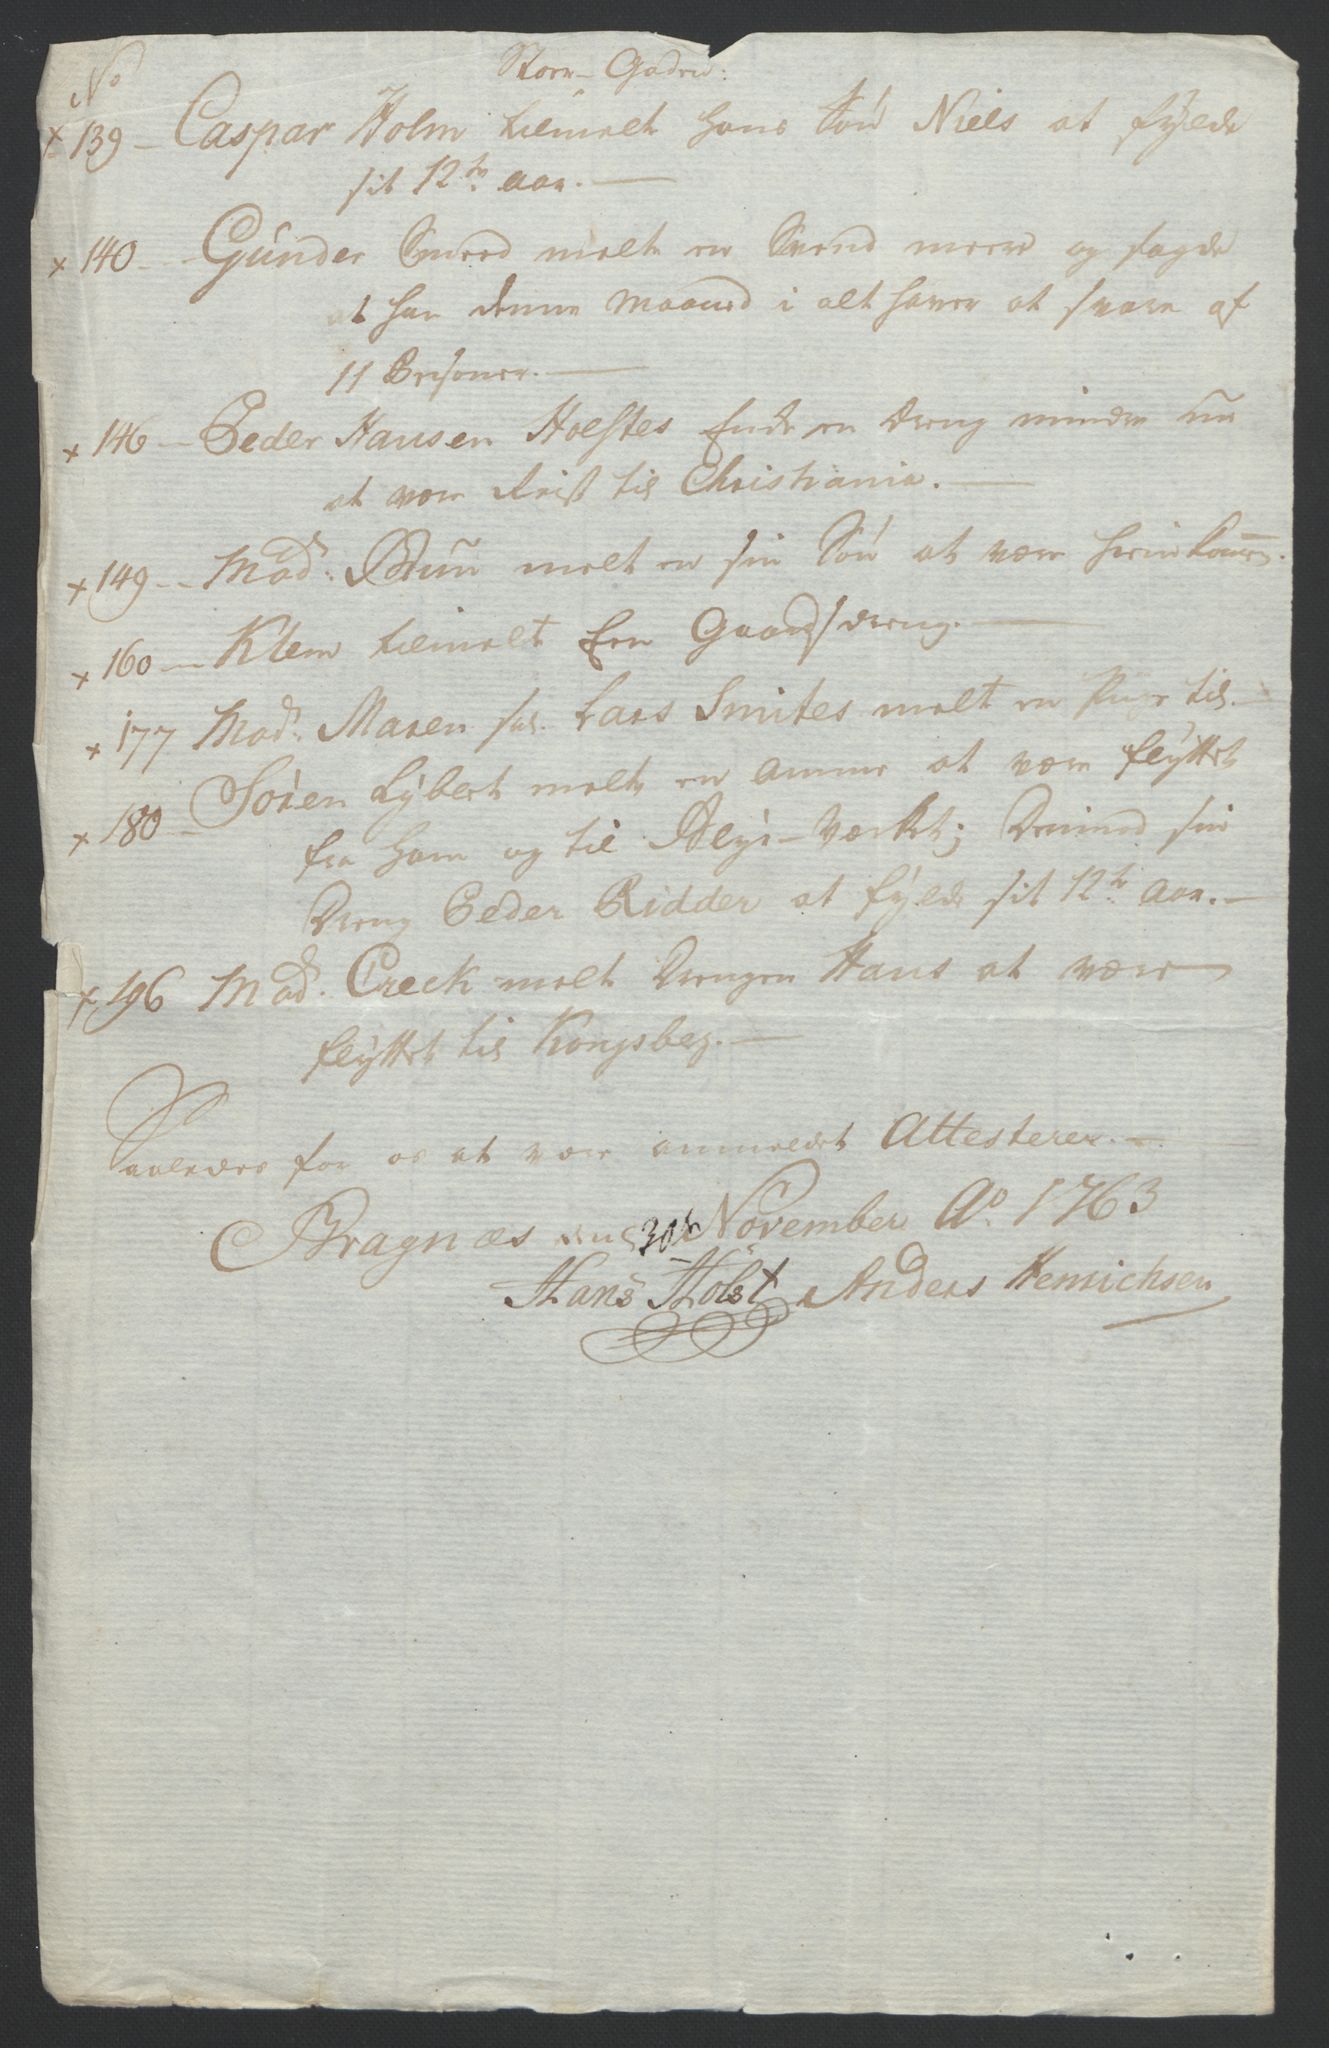 No
Stoer-Gaden:
x 139 - Caspar Holm tilmelt hans Søn Niels at fylde
sit 12te aar.
x 140 - Gunder Smeed melte en Svend meere og sagde
at han denne Maaned i alt haver at svare af
11 Personer.
x 146 - Peder Hansen Holstes Enke en Dreng mindre
at være Reist til Christiania.
x 149 - Mad: Bruun melt en sin Søn at være
x 160 - Klem tilmelt Een Gaardsdreng.
x 177 Mad: Maren sal. Lars Smites melt en Pige til.
x 180 - Sören Lybert melte en Amme at være flyttet
fra ham og til Blye-Værket; Dernæst sin
Dreng Peder Ridder at fylde sit 12te Aar.
x 196 Mad: Creck melt Drengen Hans at være
flyttet til Kongsberg.
Saaledes for os at være anmeldet Attesterer.
Bragnæs den 30te November Ao. 1763
Hans Holst Anders Henrichsen